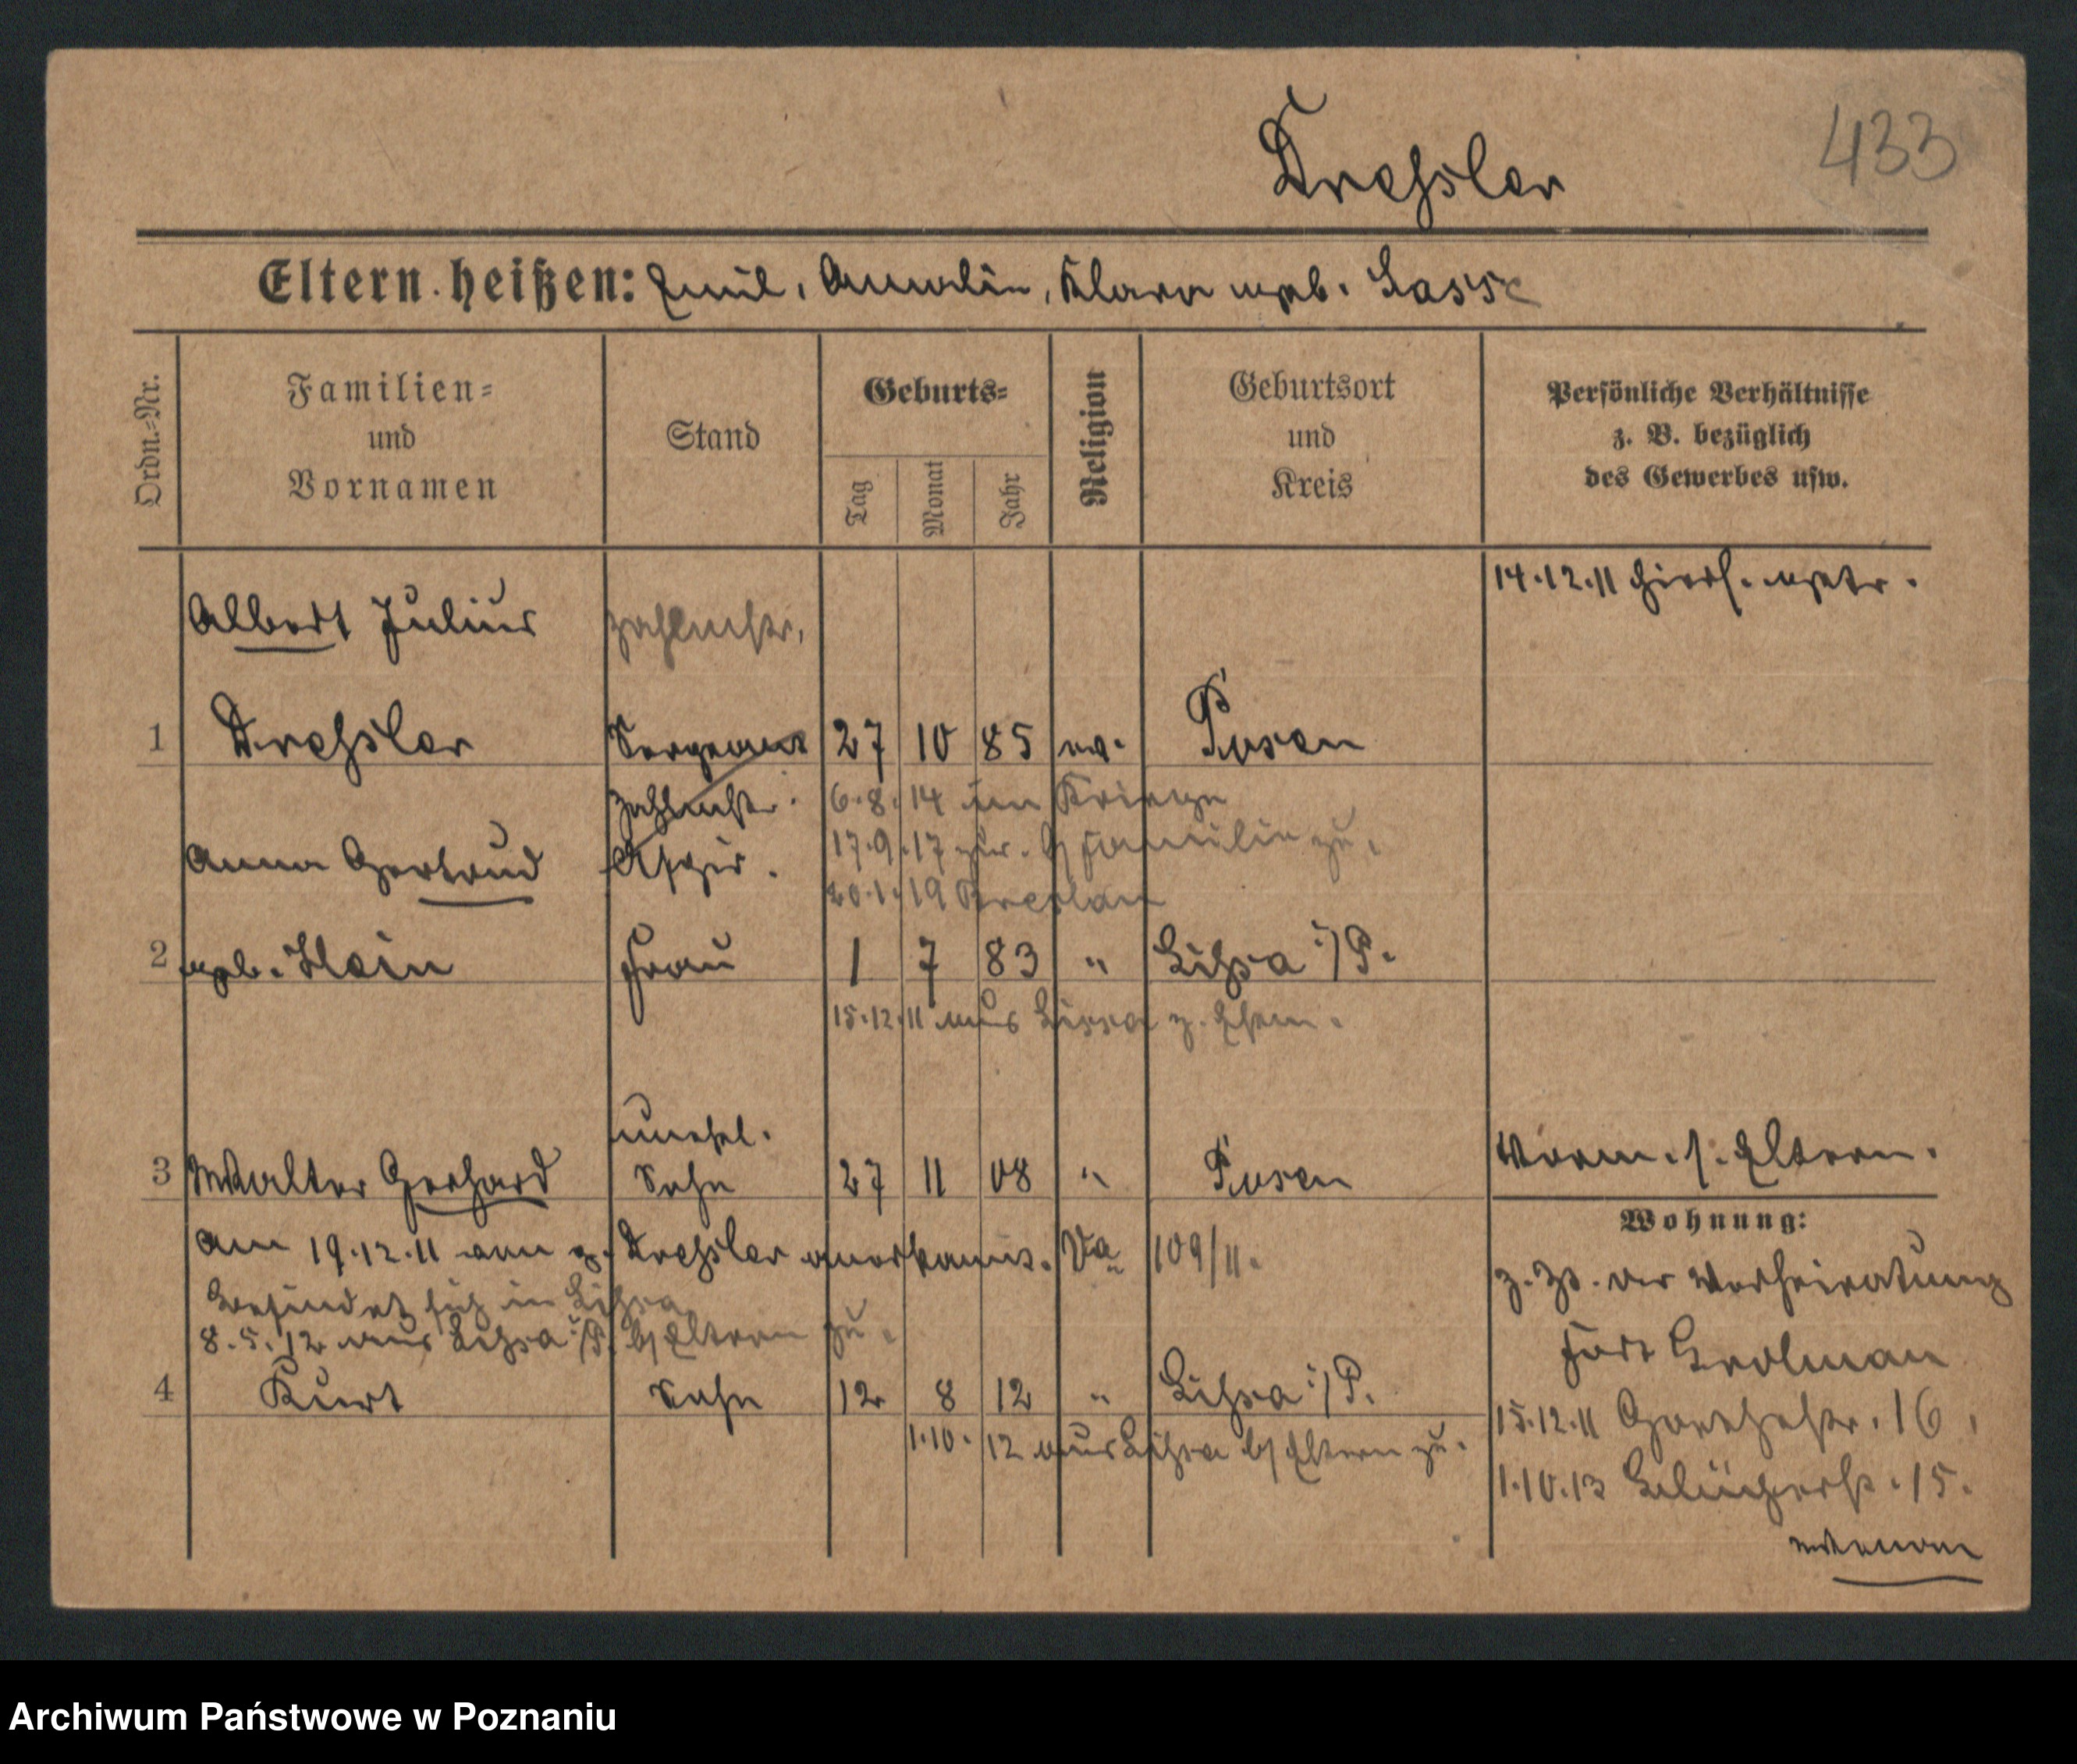 Dressler
433
Eltern heißen: Emil, Amalie, Klara geb. Lasse
Ordn.-Nr.
Familien-
und
Vornamen
Stand
Geburts-
Tag
Monat
Jahr
Religion
Geburtsort
und
Kreis
Persönliche Verhältnisse
z. B. bezüglich
des Gewerbes usw.
14.12.11 hiers.
Albert Julius Zahlmstr.
1 Dressler Sergeant 27 10 85 ev. Posen
Zahlmstr. 6.8.14 im Kriege
17.9.17 zur. b/ Familie zu.
Anna Gertrud Aspir.
20.1.19 Breslau
2 geb. Hein Frau 1 7 83 " Lissa i/P.
15.12.11 aus Lissa z. Ehem.
unehel.
3 Walter Gerhard Sohn 27 11 08 " Posen
Vorm. s. Eltern.
Am 19.12.11 von p. Dressler anerkannt. Va 109/11.
Wohnung:
befindet sich in Lissa
8.5.12 aus Lissa i/P. b/ Eltern zu.
z. Zt. der Verheiratung
Fort Grolman
4 Kurt Sohn 12 8 12 " Lissa i/P.
1.10.12 aus Lissa b/ Eltern zu.
15.12.11 Goethestr. 16,
1.10.13 Blücherstr. 15.
wenden
Archiwum Państwowe w Poznaniu